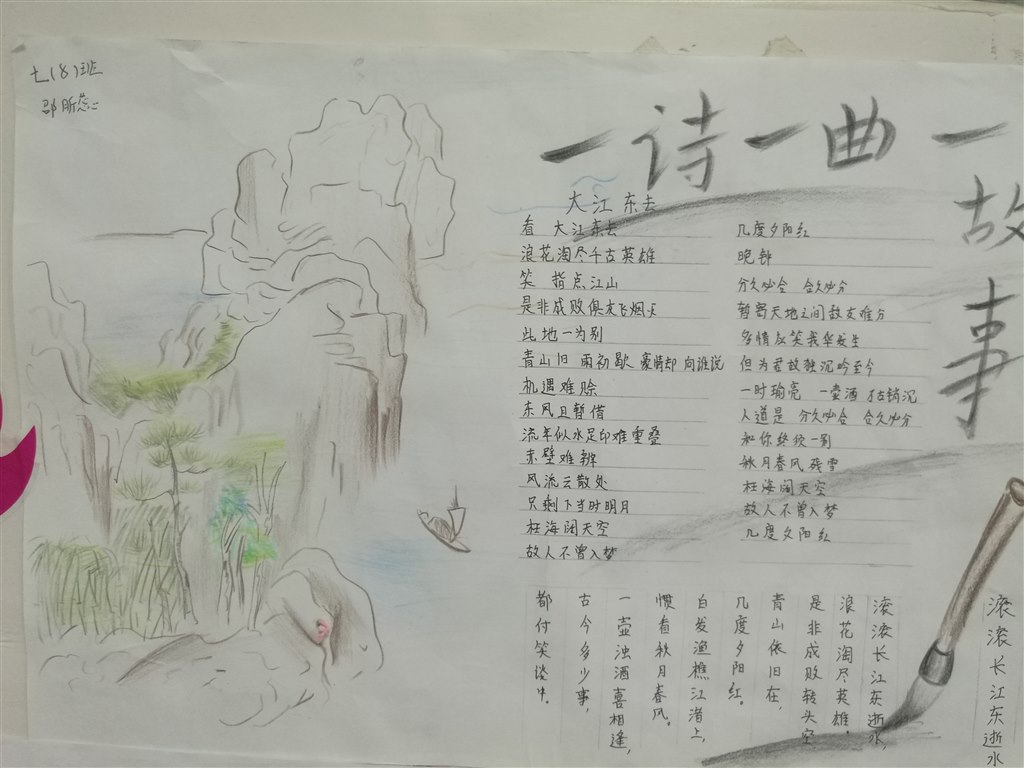 七(8)班
邵昕蕊
一诗一曲一
故
事
大江东去
看 大江东去
浪花淘尽千古英雄
笑 指点江山
是非成败俱灰飞烟灭
此地一为别
青山旧 雨初歇 豪情却向谁说
机遇难赊
东风且暂借
流年似水足印难重叠
赤壁难辨
风流云散处
只剩下当时明月
枉海阔天空
故人不曾入梦
几度夕阳红
晚钟
分久必合 合久必分
暂寄天地之间敌友难分
多情反笑我华发生
但为君故独沉吟至今
一时瑜亮 一壶酒 销沉
人道是 分久必会 合久必分
和你终狡一别
秋月春风残雪
枉海阔天空
故人不曾入梦
几度夕阳红
滚滚长江东逝水,
浪花淘尽英雄。
是非成败转头空
青山依旧在,
几度夕阳红。
白发渔樵江渚上,
惯看秋月春风。
一壶浊酒喜相逢,
古今多少事,
都付笑谈中。
滚滚长江东逝水